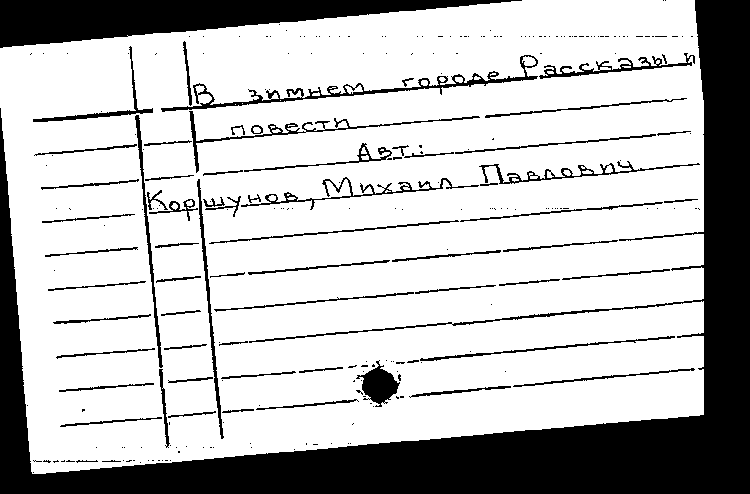 В зимнем городе. Рассказы и
повести
Авт.:
Коршунов, Михаил Павлович.